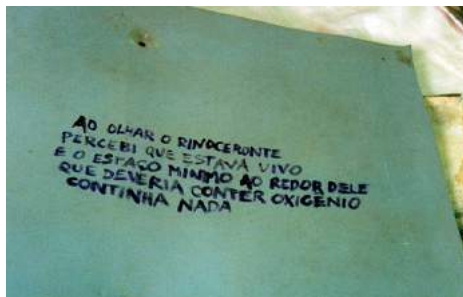 AO OLHAR O RINOCERONTE
PERCEBI QUE ESTAVA VIVO
E O ESPAÇO MINIMO AO REDOR DELE
QUE DEVERIA CONTER OXIGÊNIO
CONTINHA NADA